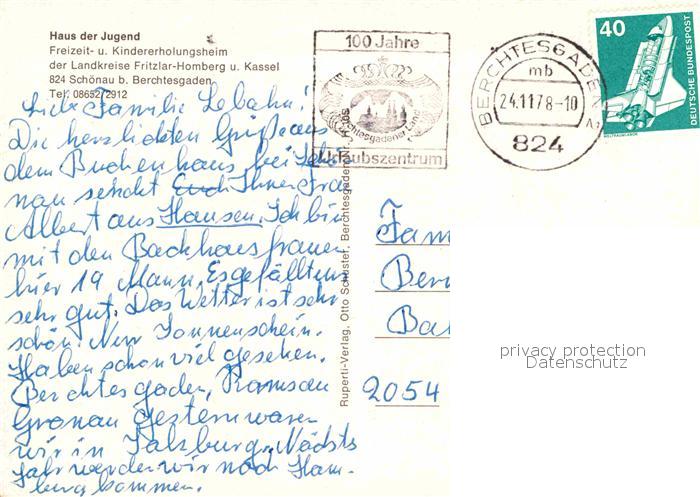 Haus der Jugend
Freizeit- u. Kindererholungsheim
der Landkreise Fritzlar-Homberg u. Kassel
824 Schönau b. Berchtesgaden
Tel. 08652/2912
Liebe Familie Lebahn!
Die herzlichsten Grüße aus
dem Buchenhaus bei Schö
nau sendet Euch Ihnen Frau
Albert aus Hausen. Ich bin
mit den Backhausfrauen
hier 19 Mann. Es gefällt uns
sehr gut. Das Wetter ist sehr
schön. Nur Sonnenschein.
Haben schon viel gesehen.
Berchtesgaden, Ramsau
gestern waren
wir in Salzburg. Nächstes
Jahr werden wir nach Ham-
burg kommen.
100 Jahre
Berchtesgadener Land
Urlaubszentrum
BERCHTESGADEN 1
mb
24.11.78-10
824
40
DEUTSCHE BUNDESPOST
WELTRAUMLABOR
Ruperti-Verlag, Otto Schuster, Berchtesgaden
Fam
Ber
Ba
2054
privacy protection
Datenschutz